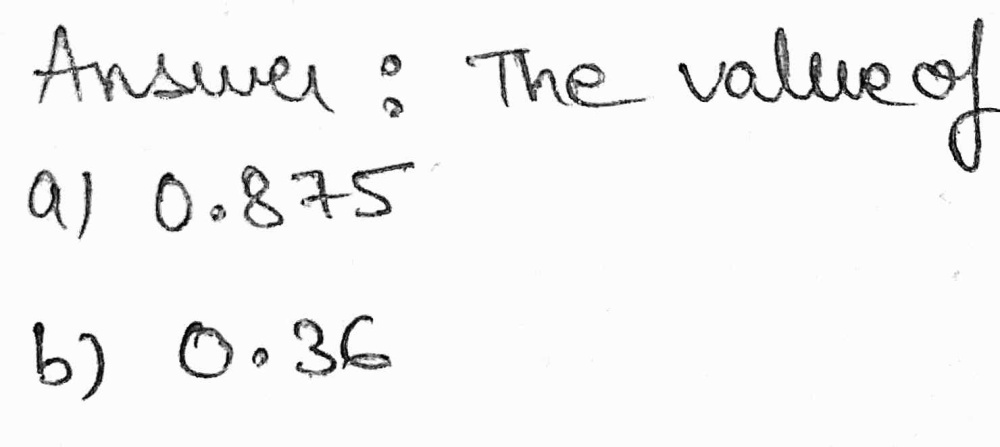 Answer : The value of
a) 0.875
b) 0.36